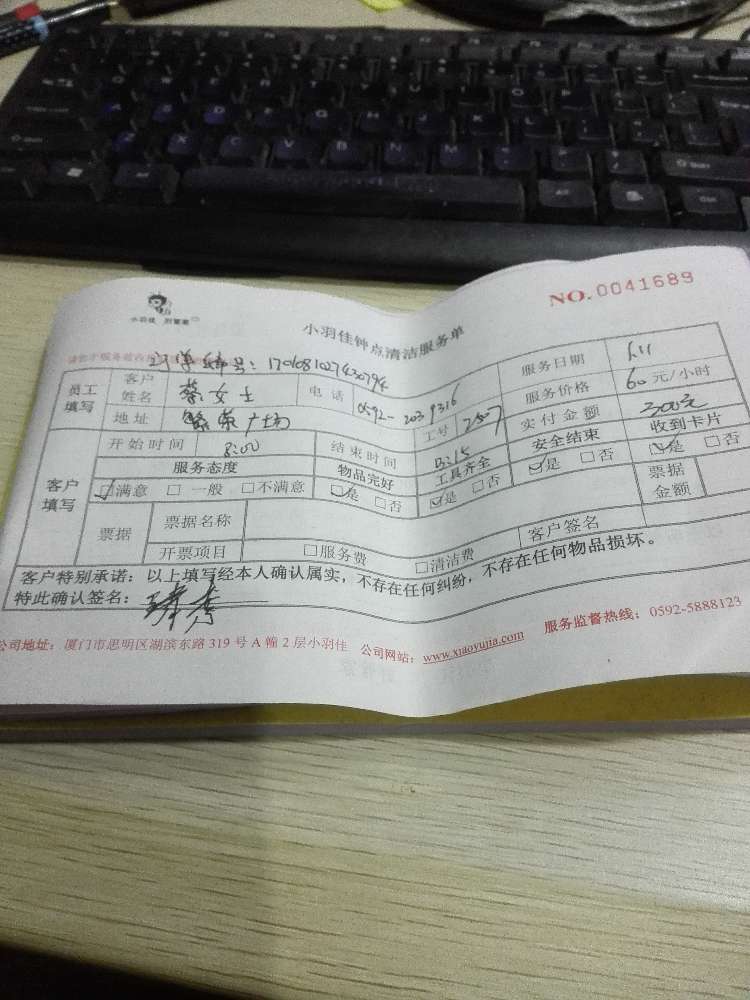 NO.0041689
小羽佳
小羽佳钟点清洁服务单
订单编号：1701681027430794
员工填写 客户姓名 蔡女士 电话 0592-2039316 服务日期
地址 繁荣广场 工号 2507 服务价格 60元/小时
开始时间 8:00 结束时间 实付金额 300元
服务态度 物品完好 工具齐全 安全结束 收到卡片
客户填写 □满意 □一般 □不满意 □是 □否 □是 □否 □是 □否 □是 □否
票据 票据名称 票据金额
开票项目 □服务费 □清洁费 客户签名
客户特别承诺：以上填写经本人确认属实，不存在任何纠纷，不存在任何物品损坏。
特此确认签名：
公司地址：厦门市思明区湖滨东路 319 号 A 幢 2 层小羽佳 公司网站：www.xiaoyujia.com 服务监督热线：0592-5888123